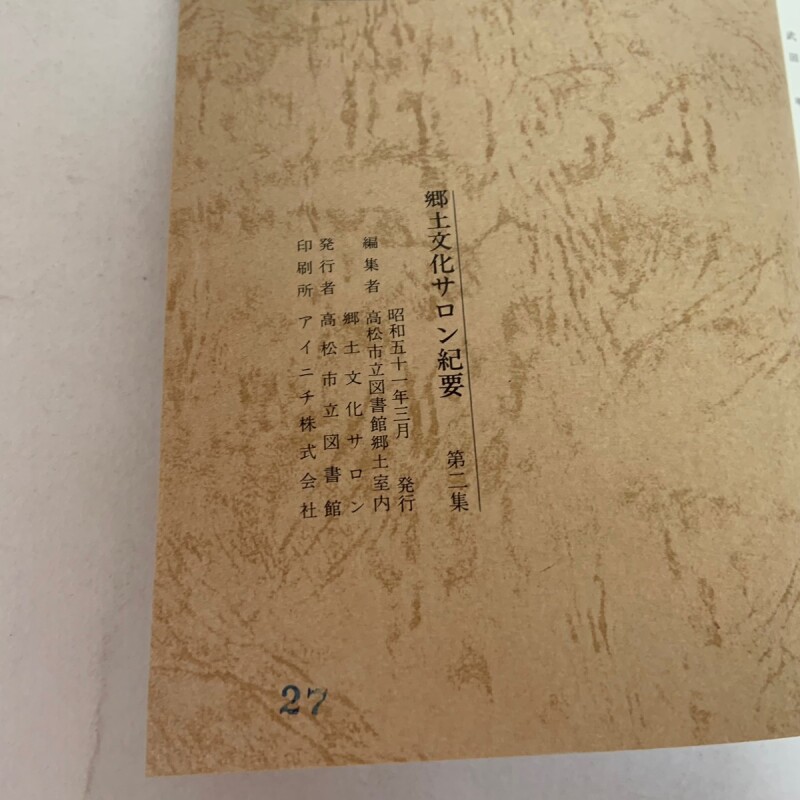 郷土文化サロン紀要 第二集
昭和五十一年三月 発行
編集者 高松市立図書館郷土室内
郷土文化サロン
発行者 高松市立図書館
印刷所 アイニチ株式会社
27